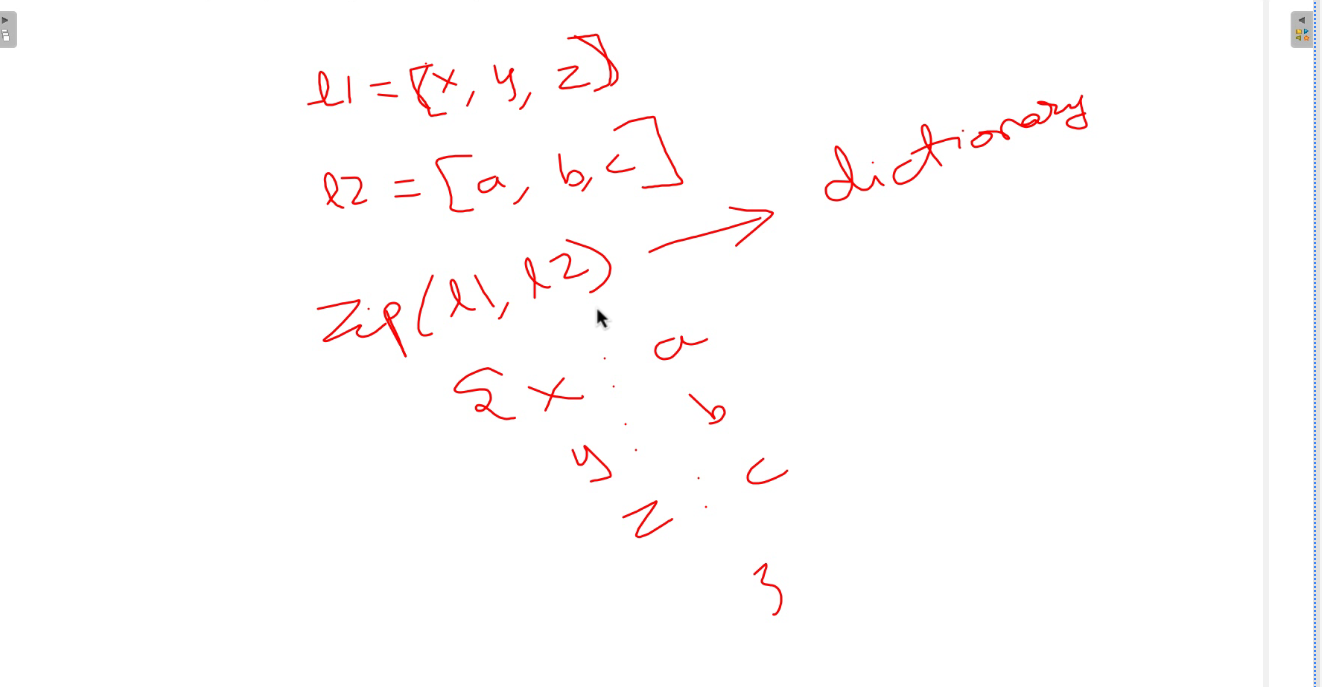 l1 = [x, y, z]
l2 = [a, b, c]
zip(l1, l2) → dictionary
{ x : a
y : b
z : c
}